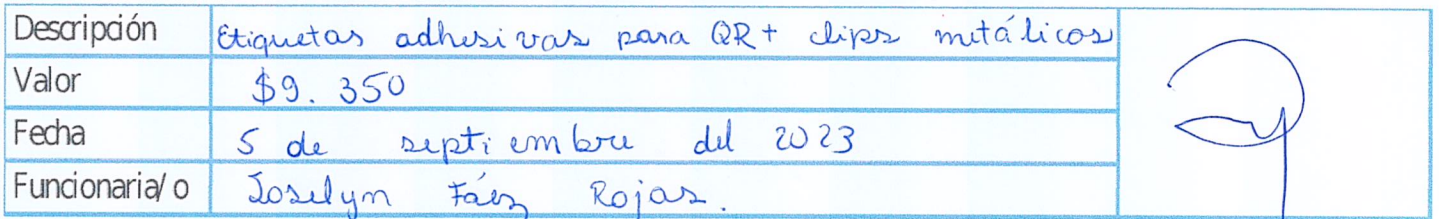 Descripción Etiquetas adhesivas para QR + clips metálicos
Valor $9.350
Fecha 5 de septiembre del 2023
Funcionaria/o Joselyn Fáez Rojas.